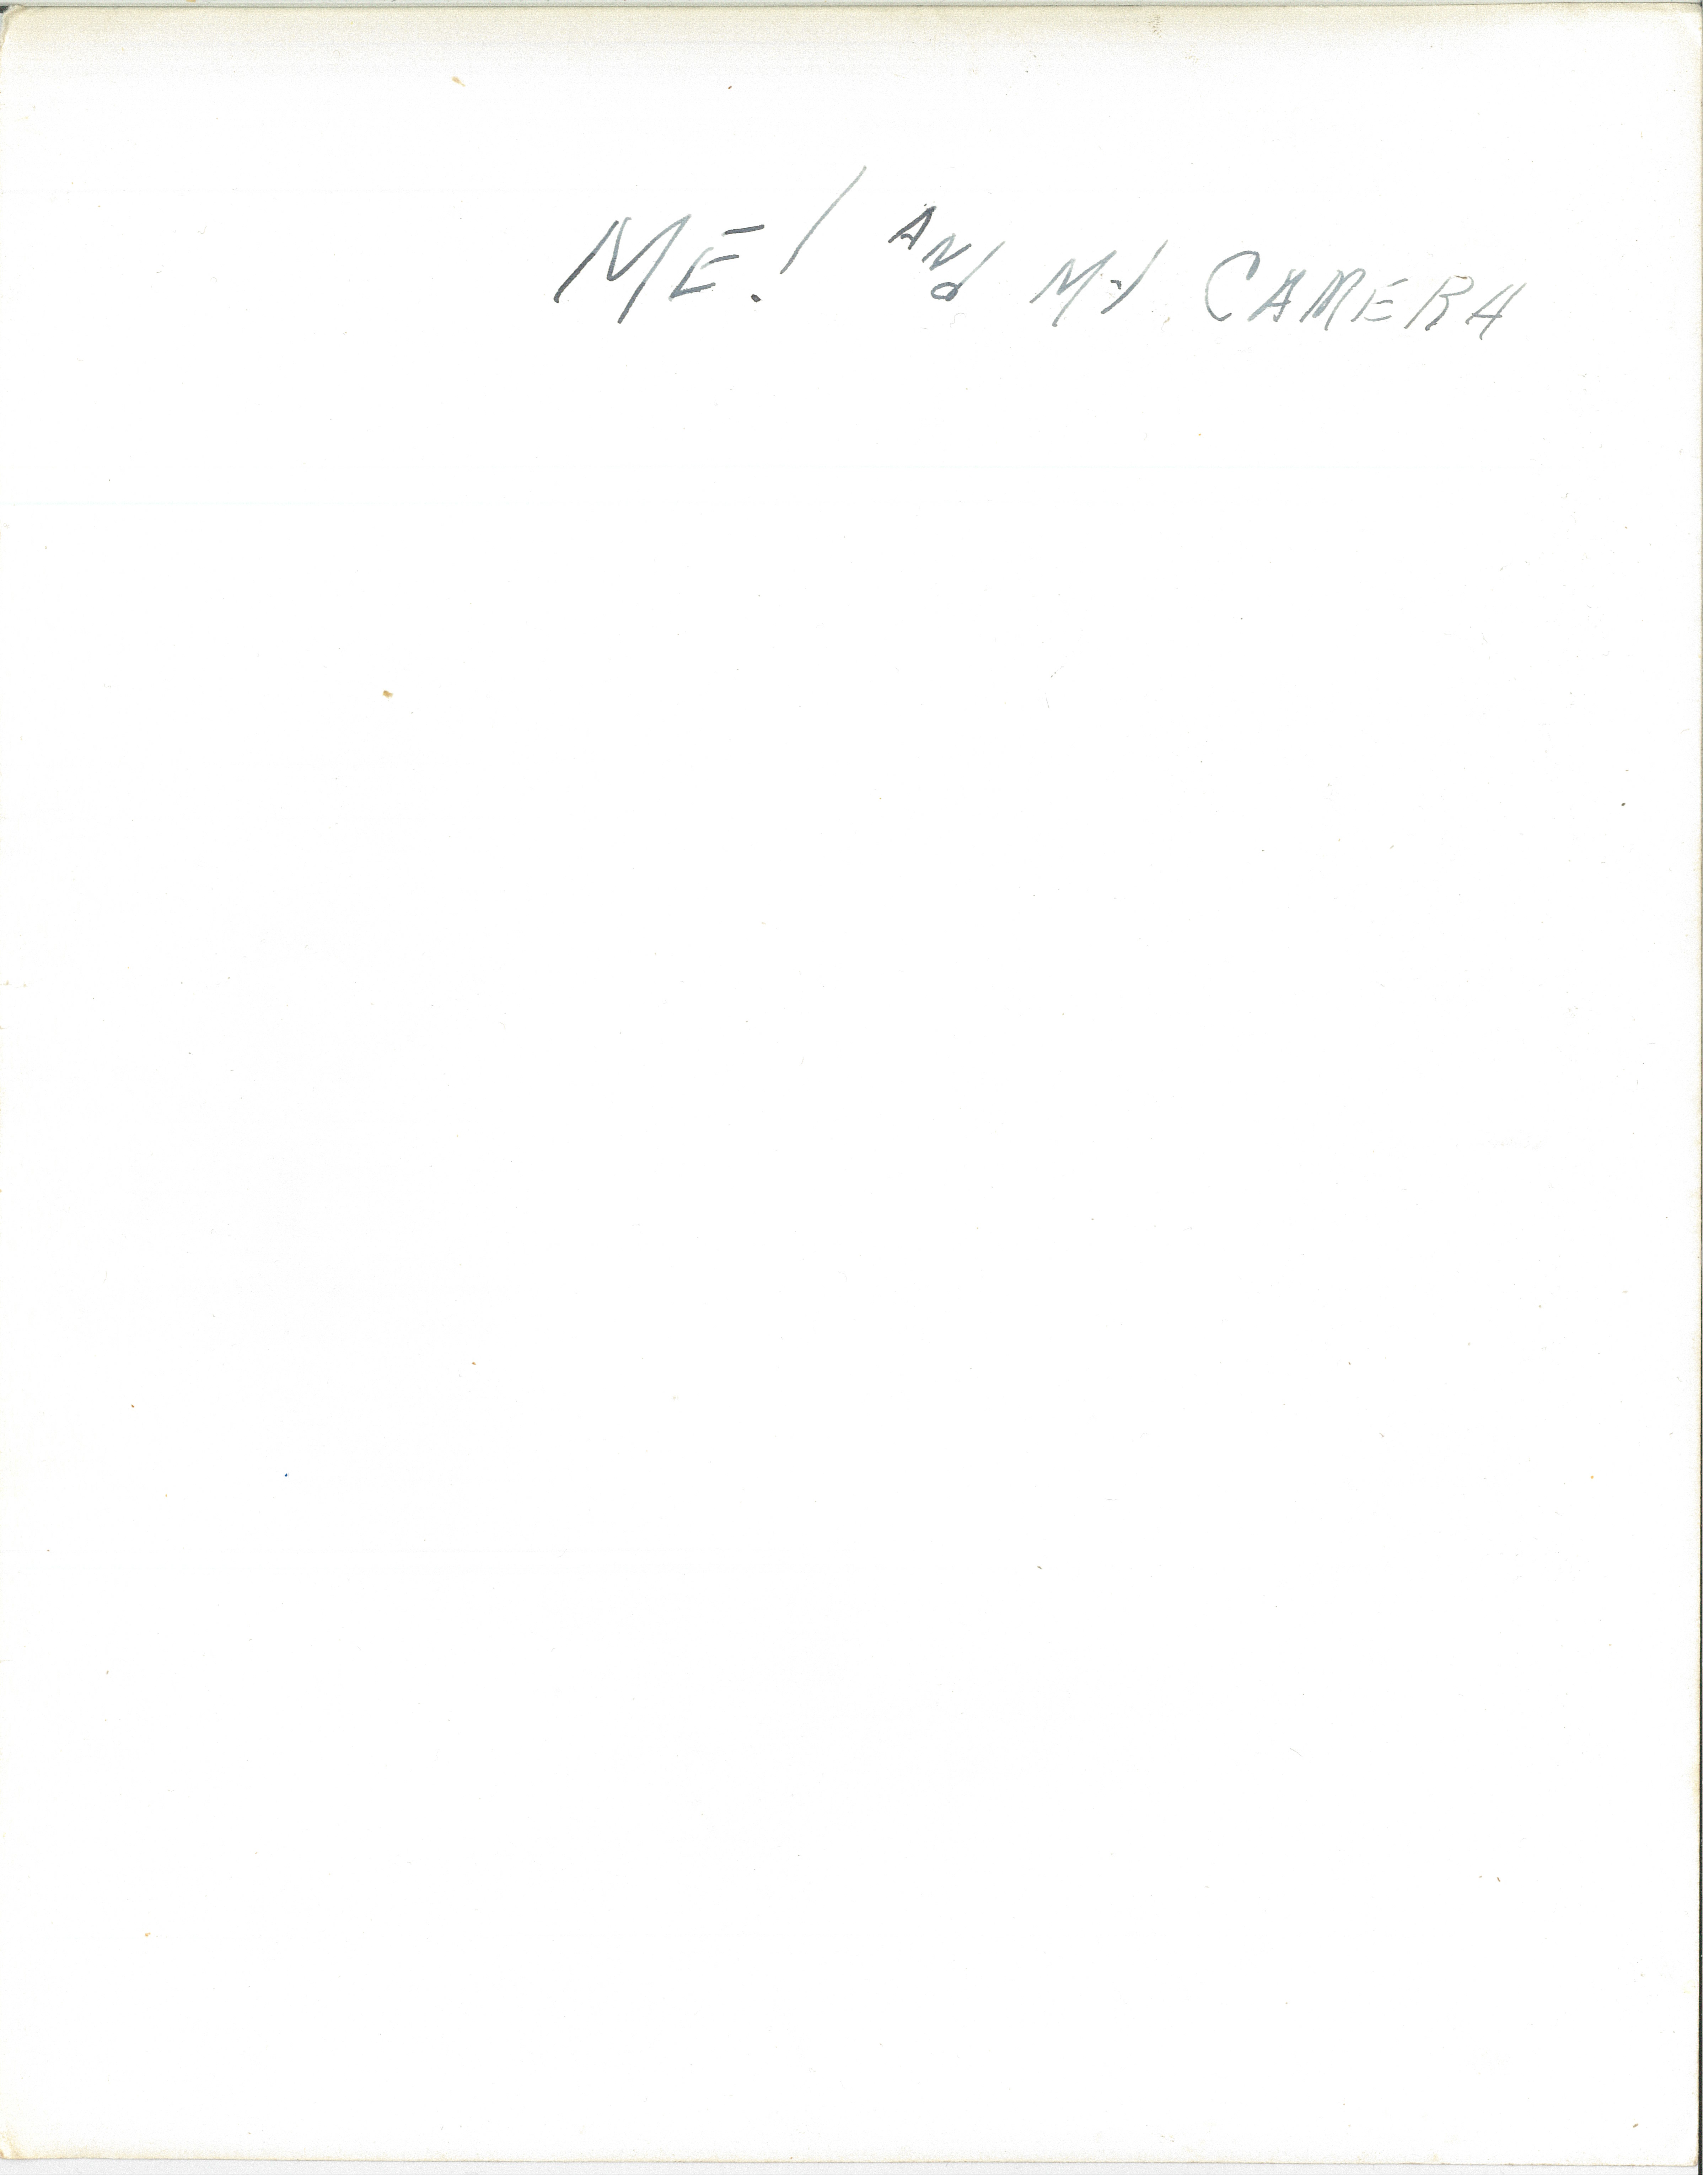 ME! AND MY CAMERA